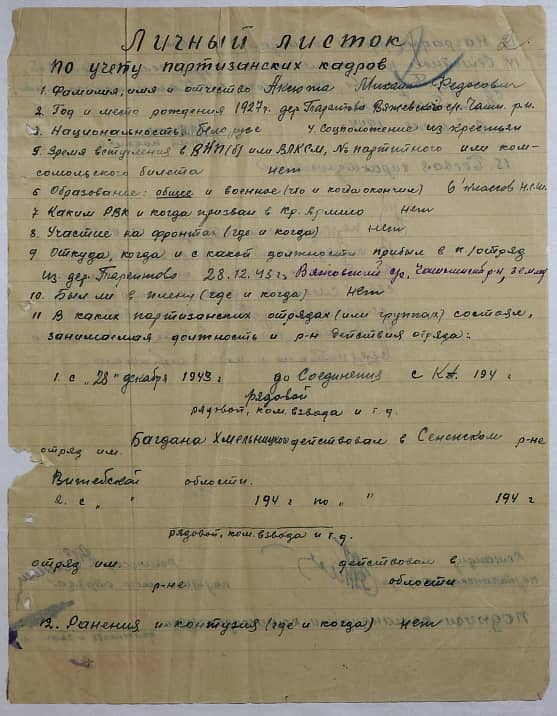 2
Личный листок
по учету партизанских кадров
1. Фамилия, имя и отчество Аксюта Михаил Федосович
2. Год и место рождения 1927 г. дер. Тараптова Вяжевского с/с. Чашн. р-н.
3. Национальность белорус 4 Соцположение из крестьян
5. Время вступления в ВКП(б) или ВЛКСМ, № партийного или ком-
сомольского билета нет
6 Образование: общее и военное (что и когда окончил) 6 классов
7 Каким РВК и когда призван в Кр. армию нет
8. Участие на фронтах (где и когда) нет
9 Откуда, когда и с какой должности прибыл в п/отряд
из дер. 28.12.43 г. с/с,
10. Был ли в плену (где и когда) нет
11 В каких партизанских отрядах (или группах) состоял,
занимаемая должность и р-н действия отряда:
1. с „28" декабря 1943 до Соединения с КА. 194 г
рядовой
рядовой, ком. взвода и т. д.
отряд им. Багдана Хмельницкого действовал в Сененском р-не
Витебской области.
2. с „ " 194 г по „ " 194 г
рядовой, ком. взвода и т. д.
отряд им. действовал в
р-не области
12. Ранения и контузия (где и когда) нет